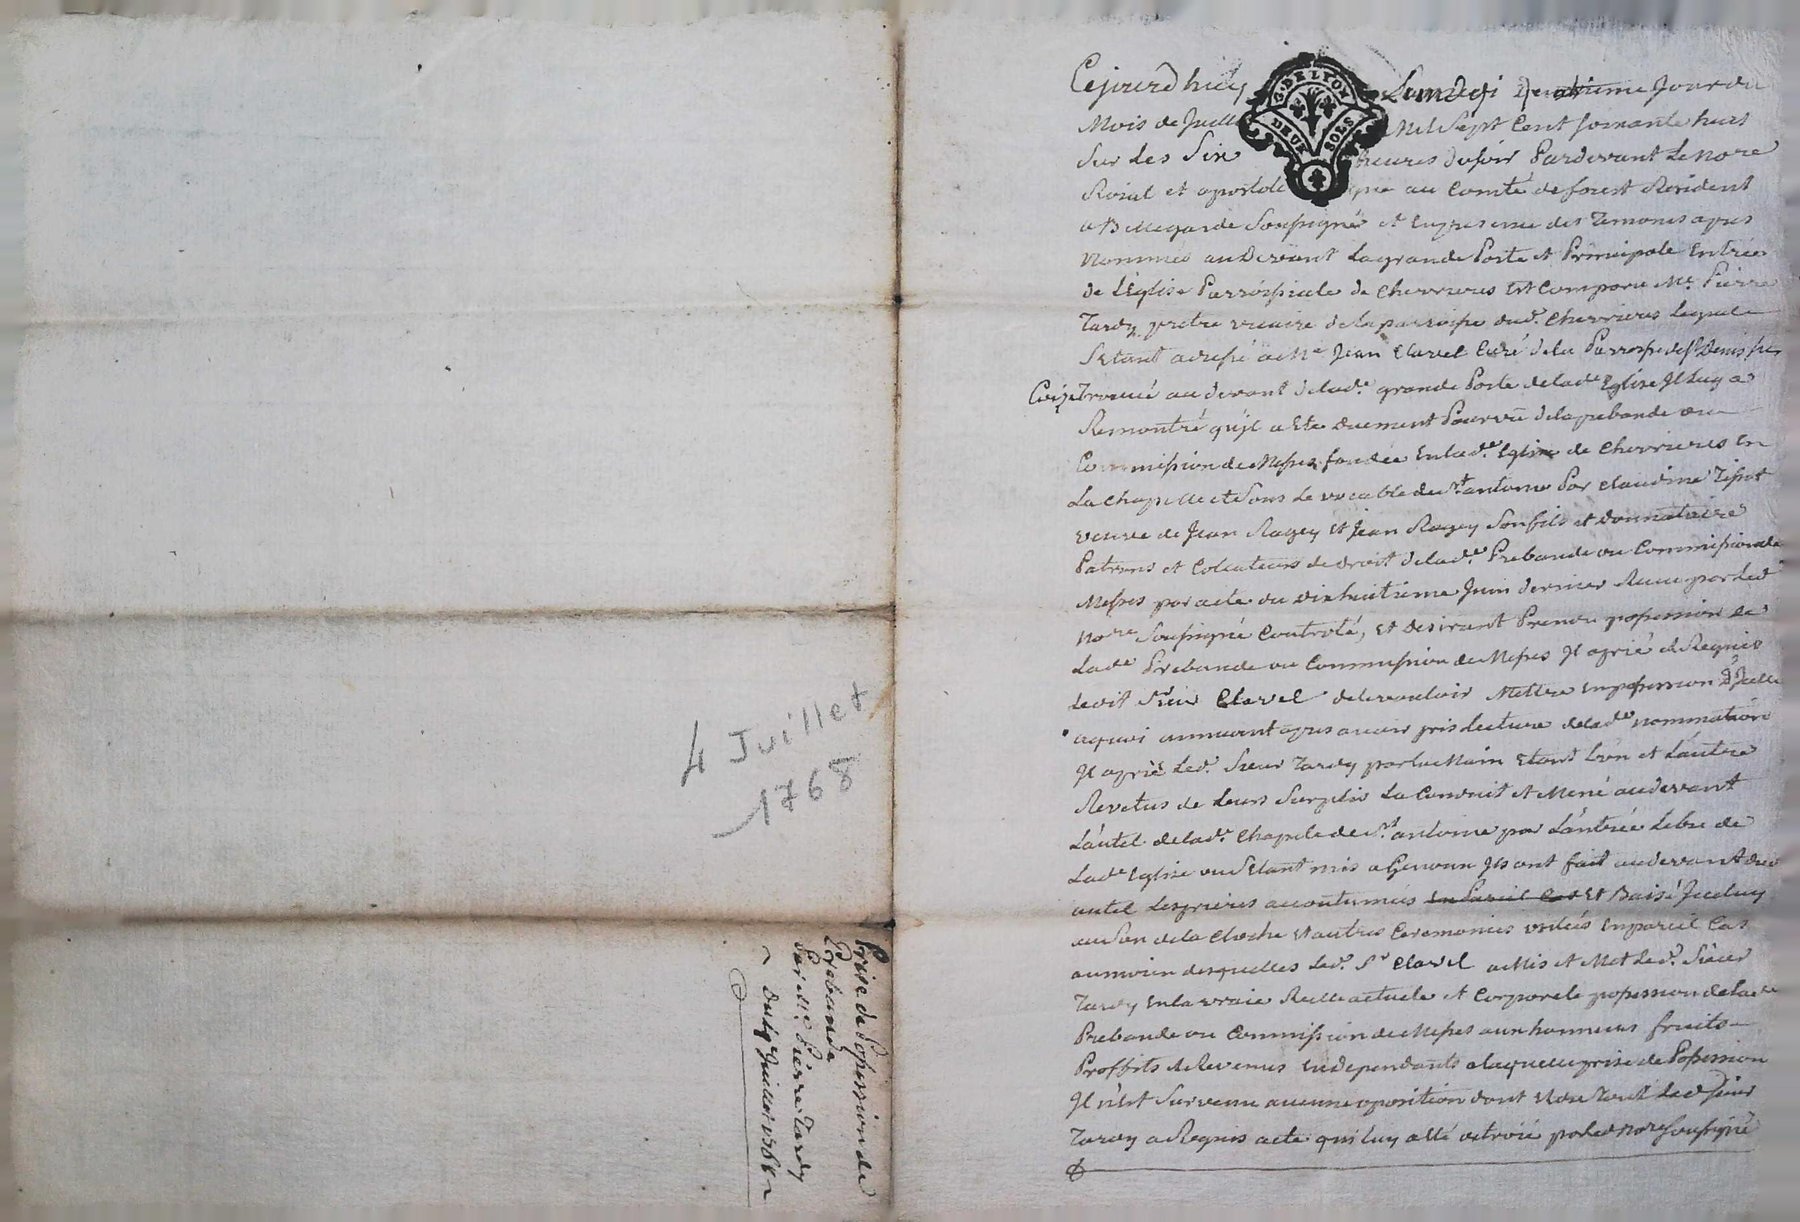 4 Juillet
1768
Prise de possession de
Prebande
Par Me. Pierre Tardy
Du 4 Juillet 1768
G. DE LYON
DEUX SOLS
Cejourd'huy Lundy jour du
Mois de Juillet Mil Sept Cent soixante huit
Sur Les Six heures du soir Pardevant Le no.re
Roial et apostolique au Comté de forest Resident
a Bellegarde Soussigné et en presence des Temoins apres
Nommés au Devant La grande Porte et Principale Entrée
de L'Eglise Parroissiale de Chevrieres Est Comparu Mr. Pierre
Tardy pretre vicaire de la parroisse dud. Chevrieres Lequel
S'Etant adressé a Me Jean Clavel Curé de la Parroisse de St Denis sur
Coize Trouvé au devant de lad.e grande Porte de lad.e Eglise Il Luy a
Remontré qu'il a Eté Duement Pourvû de la prebande ou
Commission de Messes fondée En lad.e Eglise de Chevrieres En
La Chapelle et Sous Le vocable de St. antoine Par Claudine Tissot
veuve de Jean Ragey Et Jean Ragey Son fils et Donnataire
Patrons et Colateurs de droit de lad.e Prebande ou Commission de
Messes par acte du dix huitieme Juin dernier Recu par Led.
No.re Soussigné Controlé, Et Desirant Prendre possession de
Lad.e Prebande ou Commission de Messes Il a prié et Requis
Ledit Sieur Clavel de le vouloir Mettre En possession D'Icelle
a quoi annuant apres avoir pris Lecture de lad.e nommination
Il a pris Led. Sieur Tardy par la Main Etant L'un et L'autre
Revetus de Leurs Surplis La Conduit et Mené au devant
L'autel de lad.e Chapele de St. antoine par L'entrée Libre de
Lad.e Eglise ou S'Etant mis a Genoux Ils ont fait au devant dud.
autel Les prieres accoutumées En Pareil Cas Et Baisé Iceluy
au Son de la Cloche Et autres Ceremonies usitées En pareil Cas
au moien desquelles Led. Sr Clavel a Mis et Met Led. Sieur
Tardy En la vraie Reelle actuele et Corporele possession de lad.e
Prebande ou Commission de Messes aux honneurs fruits
Proffits et Revenus En dependants a laquelle prise de Possession
Il n'est Survenu aucune oposition dont Et du Tout Led. Sieur
Tardy a Requis acte qui luy a Eté octroié par Led. No.re Soussigné